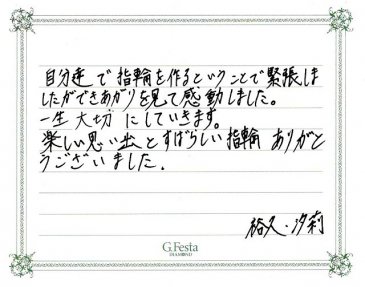 自分達で指輪を作るということで緊張しま
したができあがりを見て感動しました。
一生大切にしていきます。
楽しい思い出とすばらしい指輪ありがと
うございました.
裕久・汐莉
G.Festa
DIAMOND